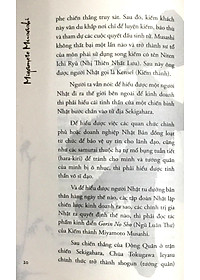 Miyamoto Musashi
phe chiến thắng truy sát. Sau đó, kiếm khách
này vân du khắp nơi chỉ để luyện kiếm, báo thù
và tham dự các cuộc quyết đấu sinh tử. Musashi
không thất bại một lần nào và trở thành sư tổ
của môn phái sử dụng song kiếm có tên Niten
Ichi Ryū (Nhị Thiên Nhất Lưu). Sau này ông
được người Nhật gọi là Kensei (Kiếm thánh).
Người ta vẫn nói: để hiểu được một người
Nhật đi ra thế giới bên ngoài để kinh doanh
thì phải hiểu cái tinh thần của một chiến binh
Nhật bước chân vào trận địa Sekigahara.
Để hiểu được việc các quan chức chính
phủ hoặc doanh nghiệp Nhật Bản đồng loạt
từ chức để bảo vệ uy tín cho lãnh đạo, cũng
như các samurai thuộc hạ tự mổ bụng tuẫn tiết
(hara-kiri) để tránh cho minh chủ và tướng của
mình bị ô nhục, thì phải hiểu được tinh
thần võ sĩ đạo.
Và để hiểu được người Nhật tu dưỡng bản
thân hàng ngày, các tập đoàn Nhật lập
chiến lược kinh doanh ra sao, các chính trị gia
Nhật ra quyết định thế nào, thì phải đọc tác
phẩm kinh điển Gorin No Sho (Ngũ Luân Thư)
của kiếm sĩ huyền thoại Miyamoto Musashi.
Sau chiến thắng của Đông Quân ở trận
chiến Sekigahara, Chúa Tokugawa Ieyasu
chính thức trở thành shogun (tướng quân)
20